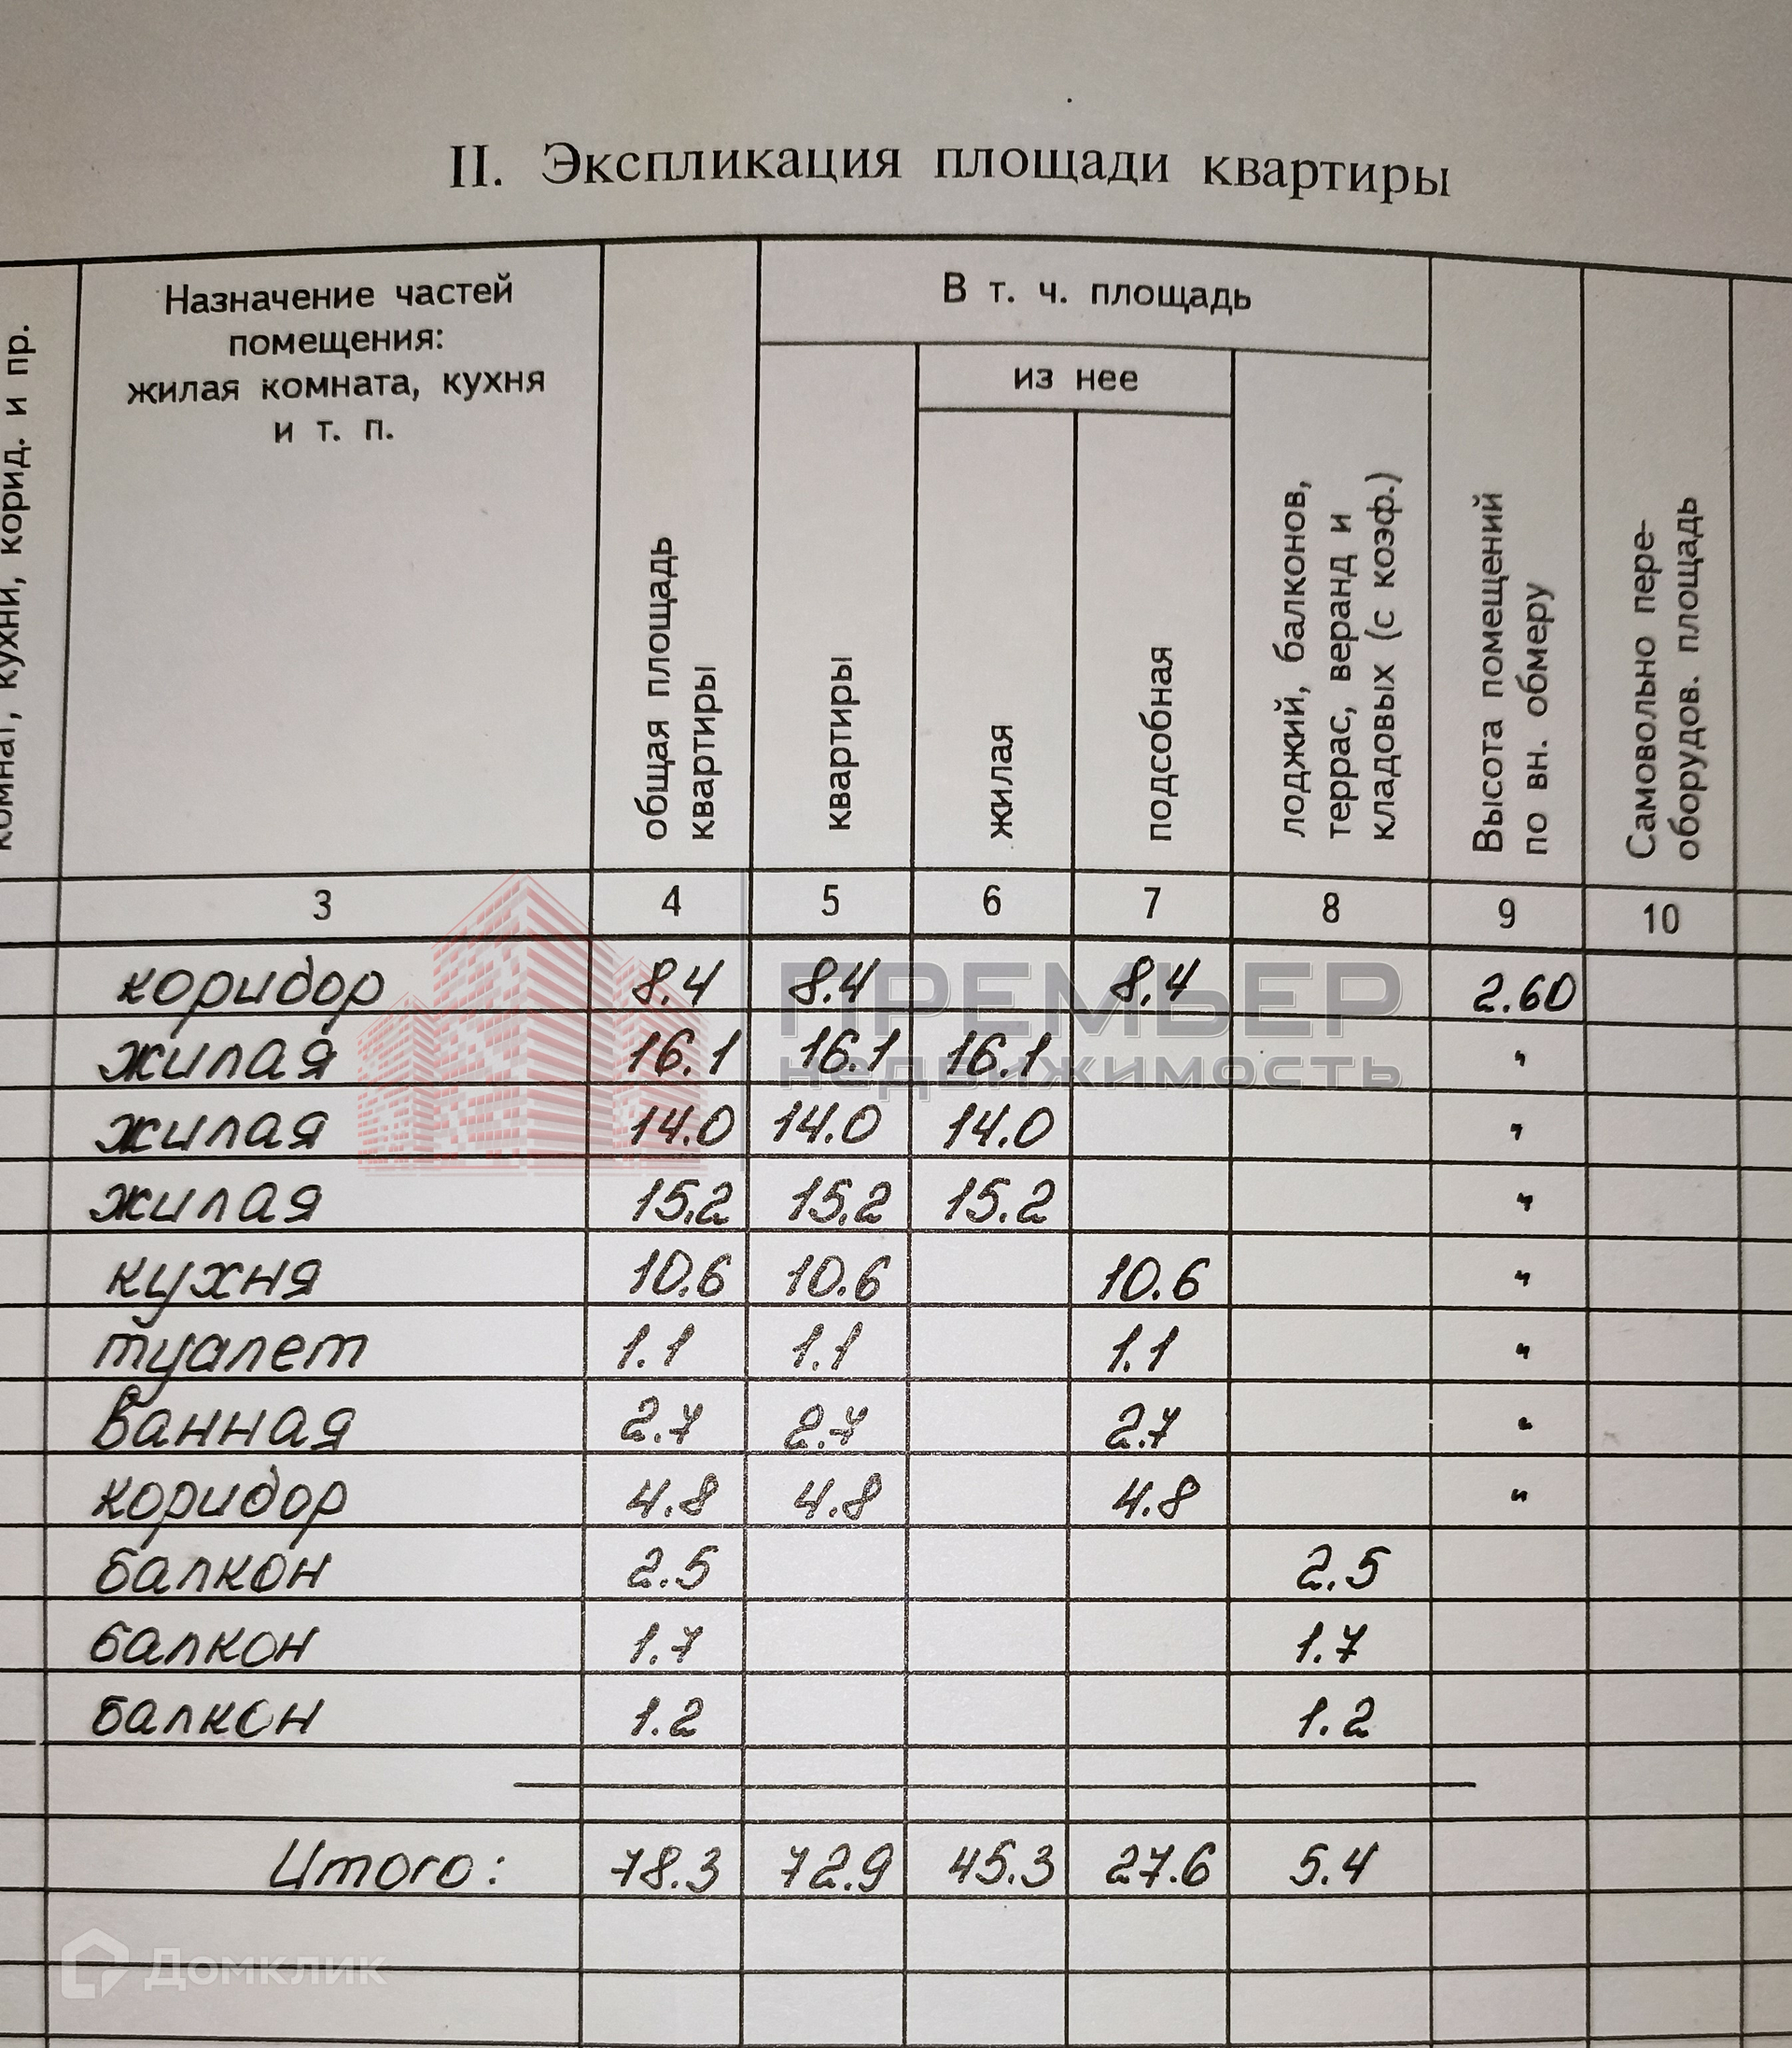 II. Экспликация площади квартиры
комнат, кухни, корид. и пр.
Назначение частей
помещения:
жилая комната, кухня
и т. п.
общая площадь
квартиры
В т. ч. площадь
из нее
квартиры
жилая
подсобная
лоджий, балконов,
террас, веранд и
кладовых (с коэф.)
Высота помещений
по вн. обмеру
Самовольно пере-
оборудов. площадь
3 4 5 6 7 8 9 10
коридор 8.4 8.4 8.4 2.60
жилая 16.1 16.1 16.1 "
жилая 14.0 14.0 14.0 "
жилая 15.2 15.2 15.2 "
кухня 10.6 10.6 10.6 "
туалет 1.1 1.1 1.1 "
ванная 2.7 2.7 2.7 "
коридор 4.8 4.8 4.8 "
балкон 2.5 2.5
балкон 1.7 1.7
балкон 1.2 1.2
Итого: 78.3 72.9 45.3 27.6 5.4
ПРЕМЬЕР
недвижимость
Домклик